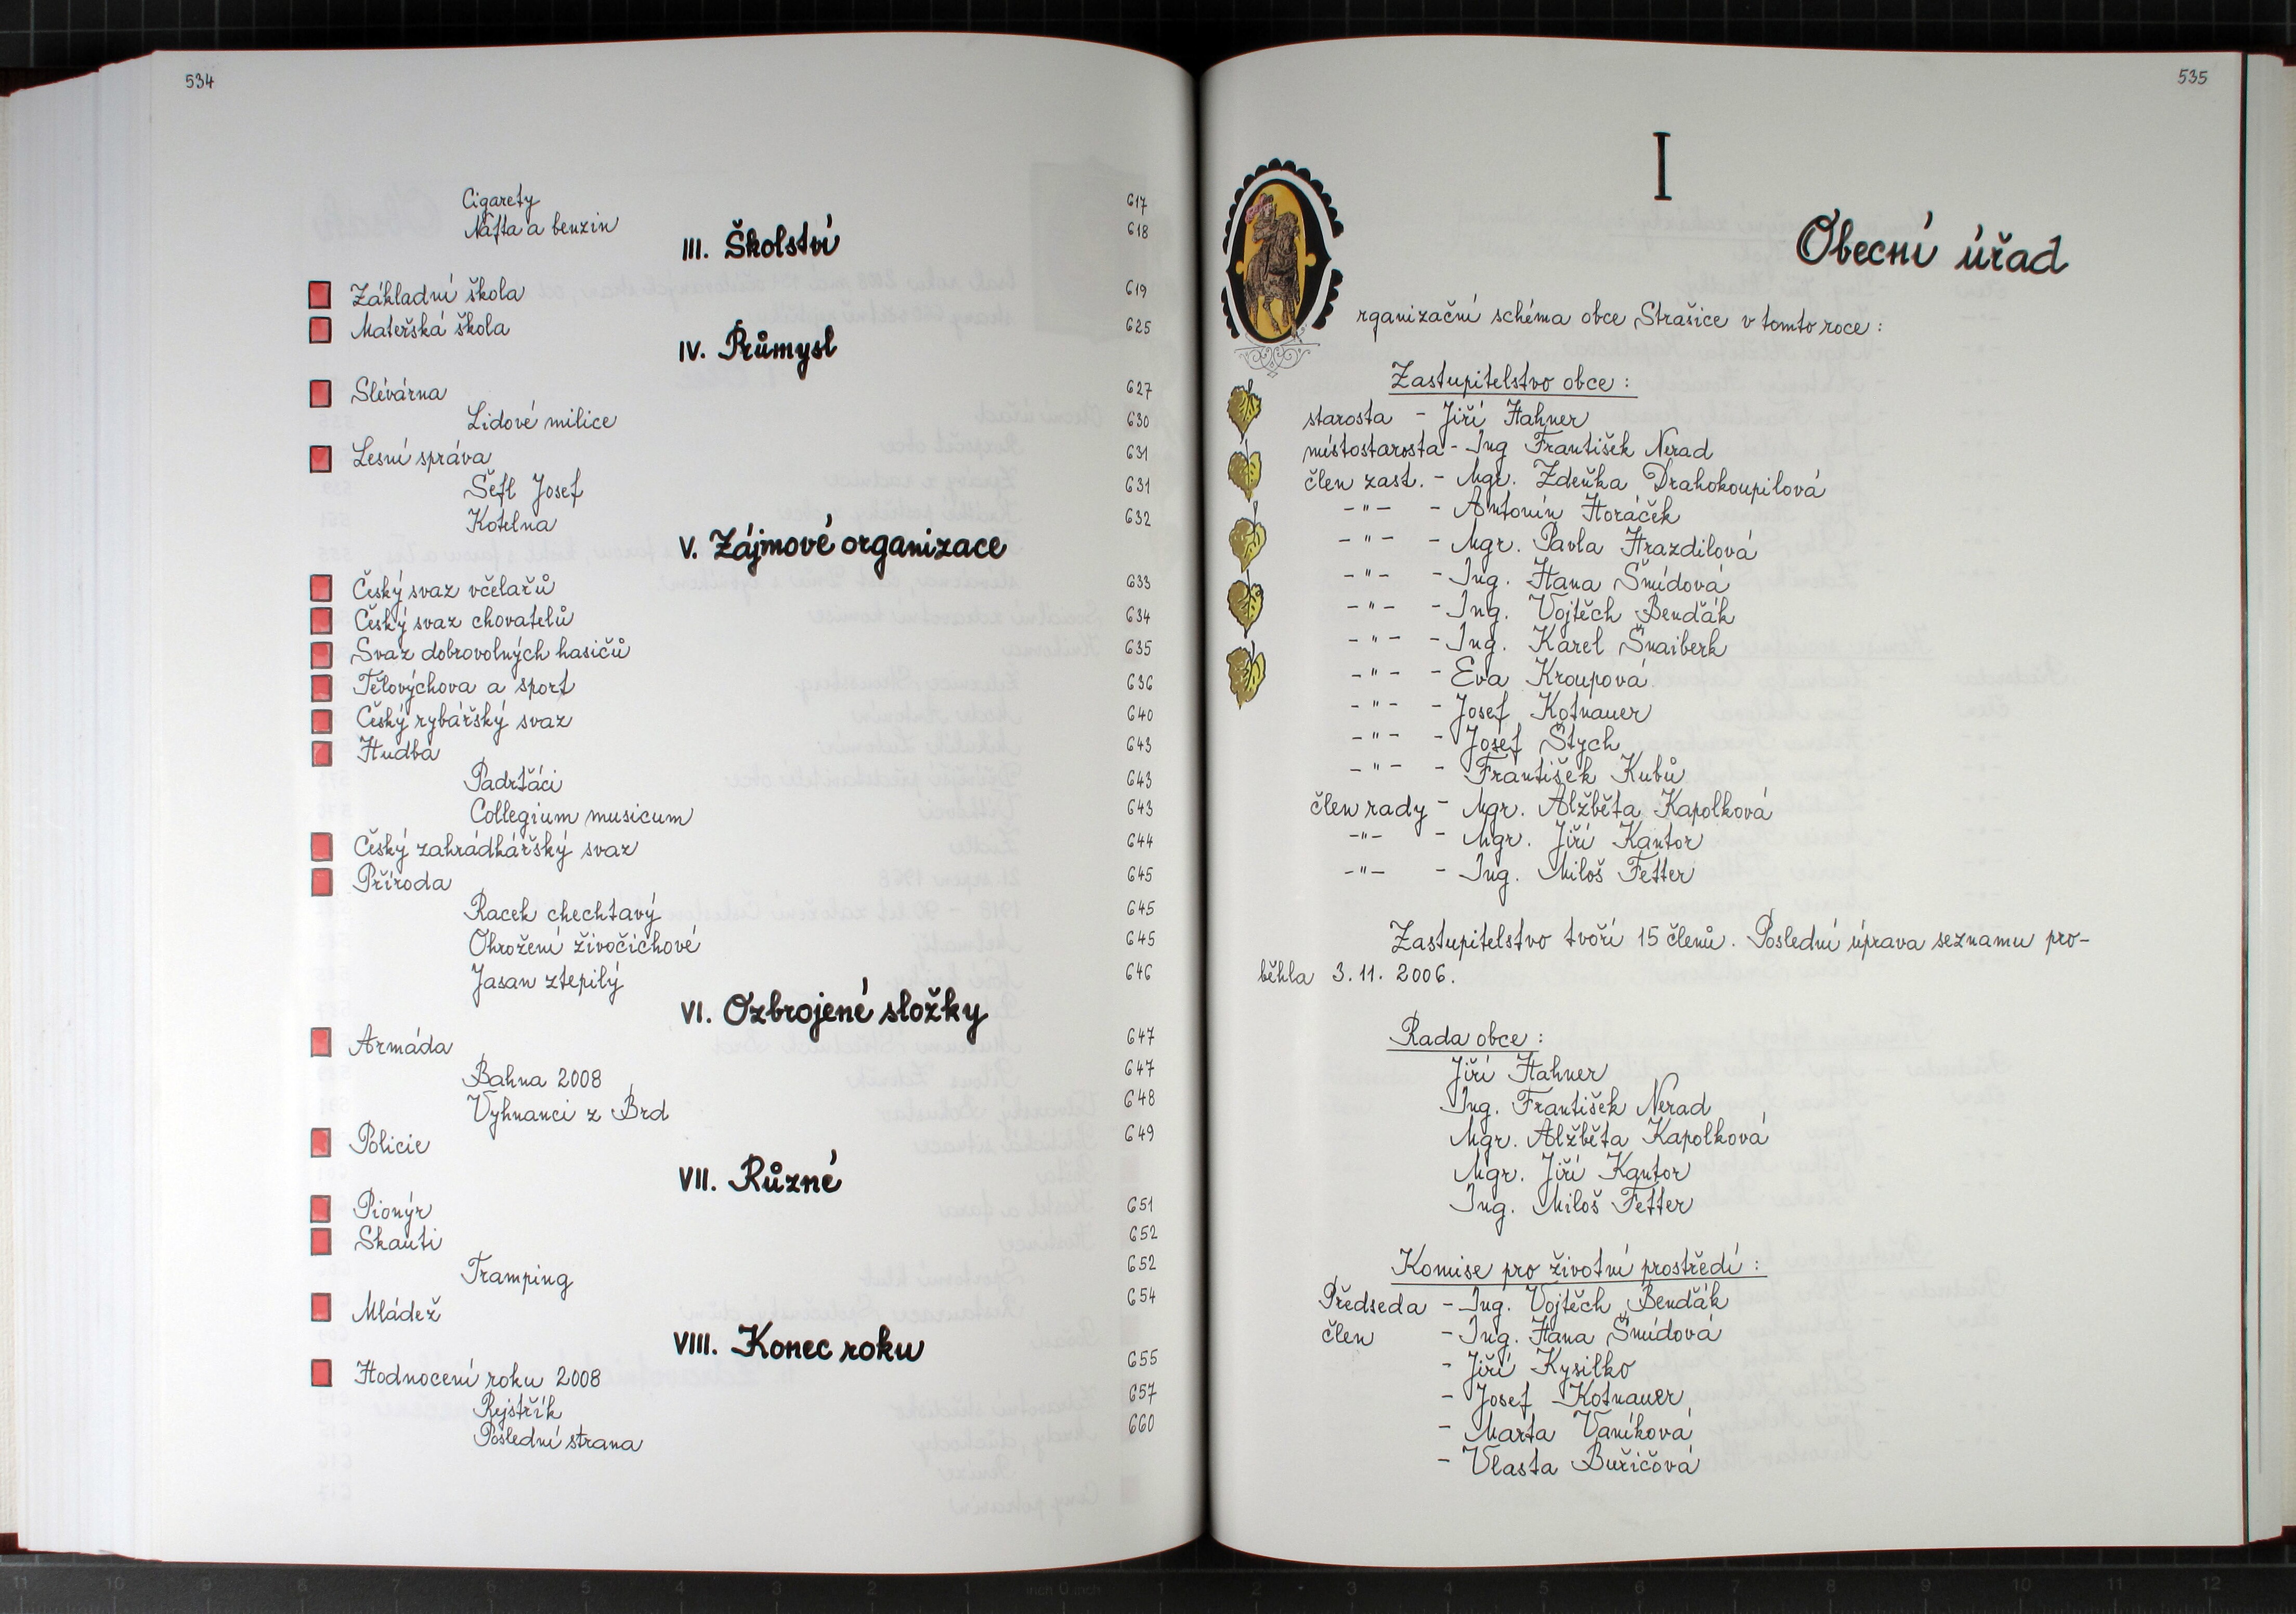 534
Cigarety 617
Nafta a benzin 618
III. Školství
Základní škola 619
Mateřská škola 625
IV. Průmysl
Slévárna 627
Lidové milice 630
Lesní správa 631
Šefl Josef 631
Kotelna 632
V. Zájmové organizace
Český svaz včelařů 633
Český svaz chovatelů 634
Svaz dobrovolných hasičů 635
Tělovýchova a sport 636
Český rybářský svaz 640
Hudba 643
Padrťáci 643
Collegium musicum 643
Český zahrádkářský svaz 644
Příroda 645
Racek chechtavý 645
Ohrožení živočichové 645
Jasan ztepilý 646
VI. Ozbrojené složky
Armáda 647
Bahna 2008 647
Vyhnanci z Brd 648
Policie 649
VII. Různé
Pionýr 651
Skauti 652
Tramping 652
Mládež 654
VIII. Konec roku
Hodnocení roku 2008 655
Rejstřík 657
Poslední strana 660
535
I
Obecní úřad
Organizační schéma obce Strašice v tomto roce :
Zastupitelstvo obce :
starosta - Jiří Hahner
místostarosta - Ing František Nerad
člen zast. - Mgr. Zdeňka Drahokoupilová
- " - - Antonín Horáček
- " - - Mgr. Pavla Hrazdilová
- " - - Ing. Hana Šmídová
- " - - Ing. Vojtěch Bendák
- " - - Ing. Karel Šnaiberk
- " - - Eva Kroupová
- " - - Josef Kotnauer
- " - - Josef Štych
- " - - František Kubů
člen rady - Mgr. Alžběta Kapolková
- " - - Mgr. Jiří Kantor
- " - - Ing. Miloš Fetter
Zastupitelstvo tvoří 15 členů. Poslední úprava seznamu pro-
běhla 3. 11. 2006.
Rada obce :
Jiří Hahner
Ing. František Nerad
Mgr. Alžběta Kapolková
Mgr. Jiří Kantor
Ing. Miloš Fetter
Komise pro životní prostředí :
Předseda - Ing. Vojtěch Bendák
člen - Ing. Hana Šmídová
- Jiří Kysilko
- Josef Kotnauer
- Marta Vaníková
- Vlasta Buřičová
11 10 9 8 7 6 5 4 3 2 1 inch 0 inch 1 2 3 4 5 6 7 8 9 10 11 12